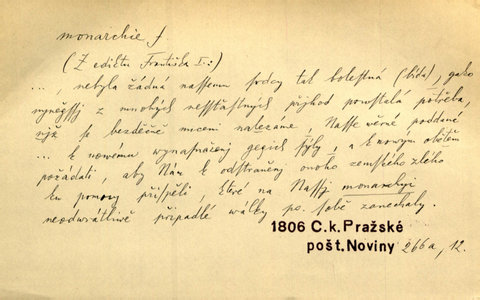 monarchie f
(Z ediktu Františka I.:)
..., nebyla žádná nassemu srdcy tak bolestná (bída), gako
nyněgssj z mnohých nessťastných přjhod powstalá potřeba,
njž se bezděčně nuceni nalezáme, Nasse věrné poddané
... k nowému wynasnaženj gegich sýly, a k nowým obětem
požádati, aby Nám k odstraněnj onoho zemského zlého
ku pomocy přispěli, které na Nassj monarchyi
neodwratitedlně připadlé wálky po sobě zanechaly.
1806 C.k.Pražské
pošt.Noviny 266a, 12.